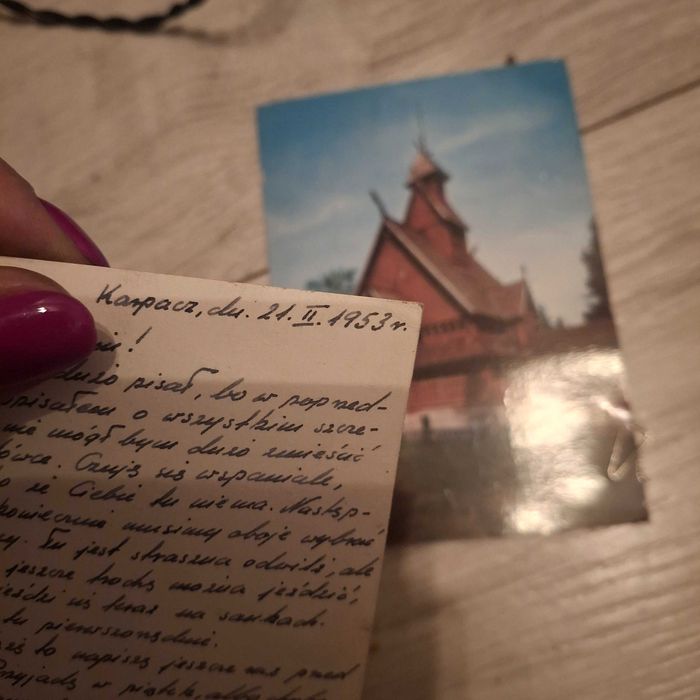 Karpacz, dn. 21.II.1953r.
ni!
dużo pisał, bo w poprzed-
pisałem o wszystkim szcze-
nie mógłbym dużo zmieścić
ówce. Czuję się wspaniale,
o że Ciebie tu niema. Następ-
koniecznie musimy oboje wybrać
y. Tu jest straszna odwilż, ale
jeszcze trochę można jeździć,
ieździ się teraz na sankach.
tu pierwszorzędni.
to napiszę jeszcze raz przed
Przyjadę w piątek, albo